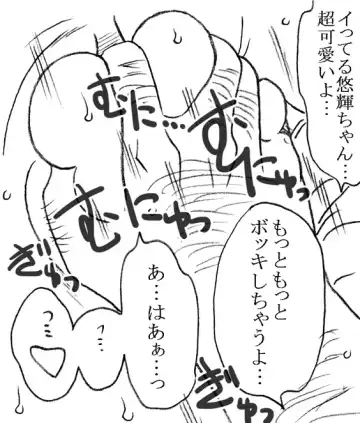 イってる悠輝ちゃん…
超可愛いよ…
むに…
むにゅっ
むにゅっ
もっともっと
ボッキしちゃうよ…
あ…はあぁ…っ
っ…
っ…
ぎゅっ
ぎゅっ